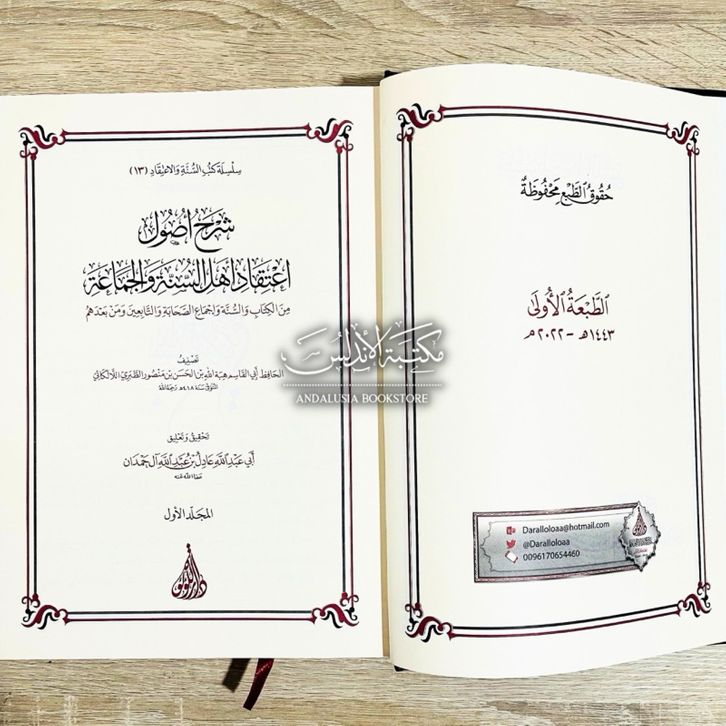 حقوق الطبع محفوظة
الطبعة الأولى
١٤٤٣ هـ - ٢٠٢٢ م
Daralloloaa@hotmail.com
@Daralloloaa
0096170654460
سلسلة كتب السنة والاعتقاد (١٣)
شرح أصول
اعتقاد أهل السنة والجماعة
من الكتاب والسنة وإجماع الصحابة والتابعين ومن بعدهم
تصنيف
الحافظ أبي القاسم هبة الله بن الحسن بن منصور الطبري اللالكائي
المتوفى سنة ٤١٨هـ رحمه الله
تحقيق وتعليق
أبي عبد الله عادل بن عبد الله آل حمدان
عفا الله عنه
المجلد الأول
دار اللؤلؤة
مكتبة الأندلس
ANDALUSIA BOOKSTORE